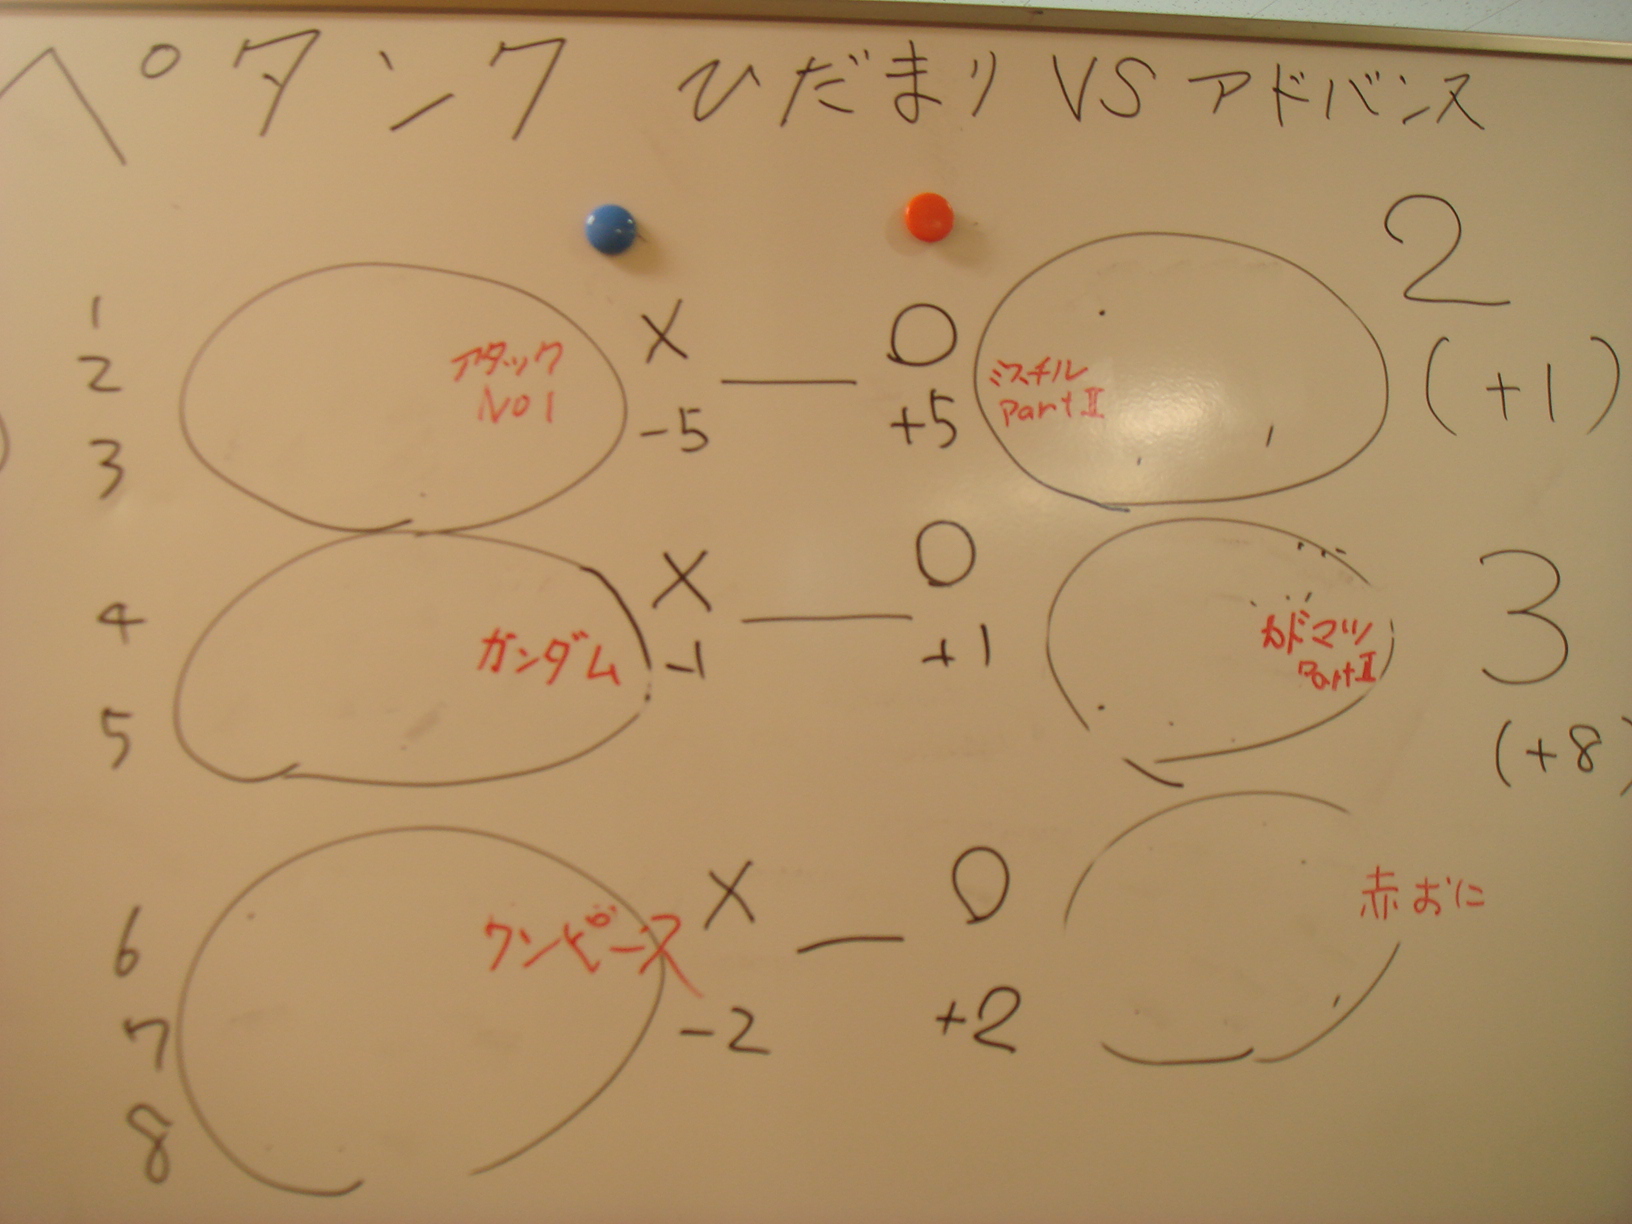 ペタンク ひだまり VS アドバンス
2
(+1)
1
2
3
アタック
No1
X
-5
O
+5
ミスチル
Part II
4
5
ガンダム
X
-1
O
+1
カドマツ
Part II
3
(+8)
6
7
8
ワンピース
X
-2
O
+2
赤おに